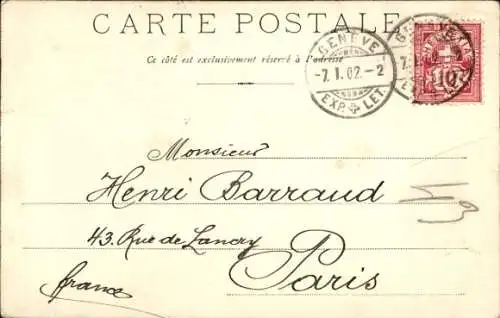 CARTE POSTALE
Ce côté est exclusivement réservé à l'adresse
GENÈVE
-7.I.02.-2
EXP. LET.
HELVETIA
10
Monsieur
Henri Barraud
43. Rue de Lancry
Paris
France